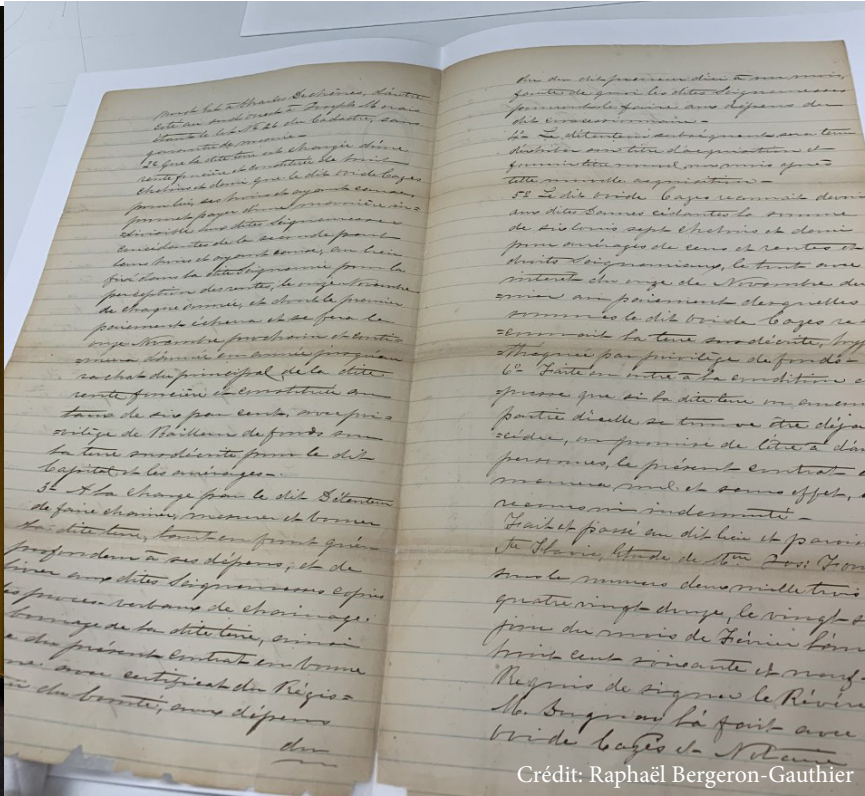 nord-est à Charles Deschênes, d'autre
côté au sud-ouest à Joseph Morais
étant le lot No 26 du Cadastre, sans
garantie de mesure -
2o Que la dite terre est chargée d'une
rente foncière et constituée de huit
chelins et demi que le dit ovide Cazes
pour lui, ses hoirs et ayant cause,
promet payer d'une manière in=
=divisible aux dites Seigneuresses
concédantes de la seconde part
leurs hoirs et ayant cause, au lieu
fixé dans la dite Seigneurie pour la
perception des rentes, le onze Novembre
de chaque année, et dont le premier
paiement échera et se fera le
onze Novembre prochain et conti=
=nuera d'année en année jusqu'au
rachat du principal de la dite
rente foncière et constituée au
taux de six par cent, avec pri=
=vilège de Bailleur de fonds sur
la terre susdécrite pour le dit
Capital et les arrérages -
3o A la charge par le dit Détenteur
de faire chainer, mesurer et borner
la dite terre, tant en front qu'en
profondeur à ses dépens, et de
livrer aux dites Seigneuresses copies
des procès-verbaux de chainage,
bornage de la dite terre, ainsi
que du présent contrat en bonne
forme avec certificat du Régis=
du Comté, aux dépens
du
du dit preneur d'ici à un mois,
faute de quoi les dites Seigneuresses
pourront le faire aux dépens du
dit concessionnaire -
4o Le détenteur subséquent sera tenu
d'exhiber son titre d'acquisition et
fournir titre nouvel, un mois après
telle nouvelle acquisition -
5o Le dit ovide Cazes reconnait devoir
aux dites Dames cédantes la somme
de six louis sept chelins et demi
pour arrérages de cens et rentes et
droits Seigneuriaux, le tout avec
intérêt du onze de Novembre der
=nier au paiement desquelles
sommes le dit ovide Cazes re
=connait la terre susdécrite, hypo
=théquée par privilège de fonds -
6o Faite en outre à la condition ex
=presse que si la dite terre ou aucune
partie d'icelle se trouve être déja
=cédée, ou promise de l'être à d'au
personnes, le présent contrat
demeurera nul et sans effet,
recours ni indemnité -
Fait et passé au dit lieu et paroisse
Ste Flavie, Etude de Mtre Jos:
sous le numéro deux mille trois
quatre vingt douze, le vingt-s
jour du mois de Février l'an
huit cent soixante et neuf.
Requis de signer le Révére
M. Duguay l'a fait avec
ovide Cazes et Notaire
Crédit: Raphaël Bergeron-Gauthier